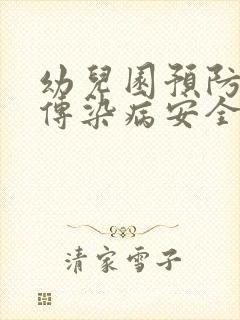 幼兒園預防
傳染病安全
清家雪子